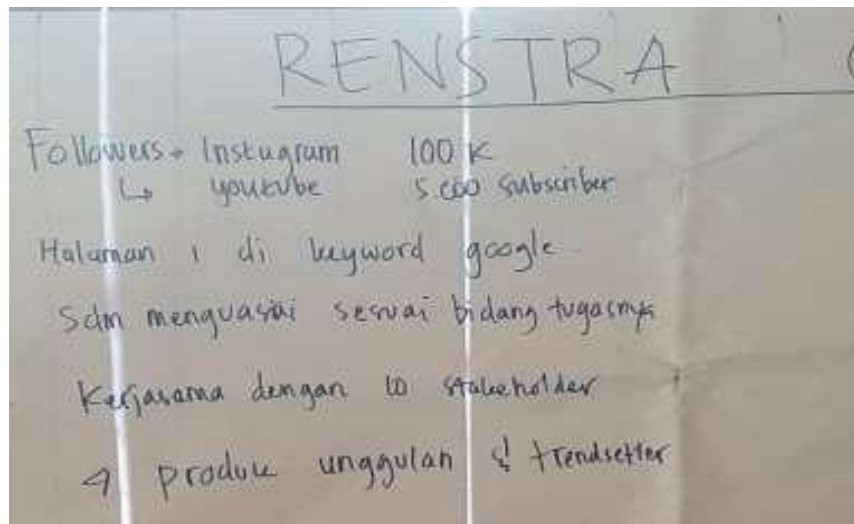 RENSTRA
Followers → Instagram 100 K
↳ youtube 5.000 subscriber
Halaman 1 di keyword google
Sdm menguasai sesuai bidang tugasnya
Kerjasama dengan 10 stakeholder
produk unggulan & trendsetter